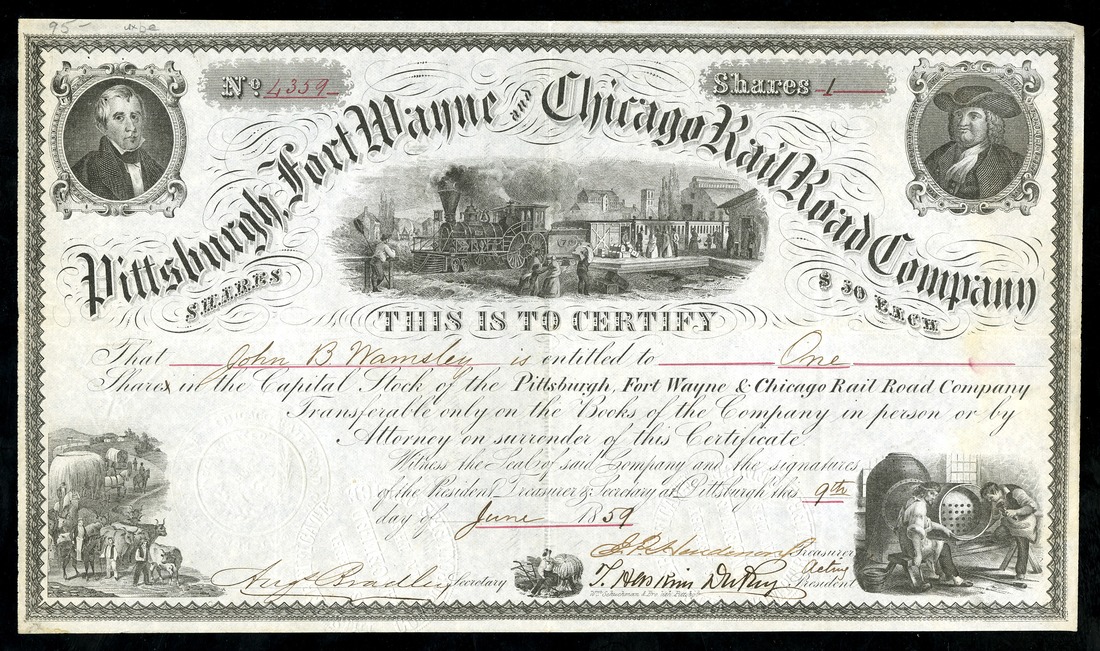 95-
No. 4359
Shares 1
Pittsburgh, Fort Wayne and Chicago Rail Road Company
SHARES
$50 EACH
THIS IS TO CERTIFY
That John B Wamsley is entitled to One
Shares in the Capital Stock of the Pittsburgh, Fort Wayne & Chicago Rail Road Company
Transferable only on the Books of the Company in person or by
Attorney on surrender of this Certificate.
Witness the Seal of said Company and the signatures
of the President, Treasurer & Secretary at Pittsburgh this 9th
day of June 1859
Henderson Treasurer
Augs Bradley Secretary
T. Haskins Acting President
Wm. Schuchman & Bro. lith. Pittsbgh